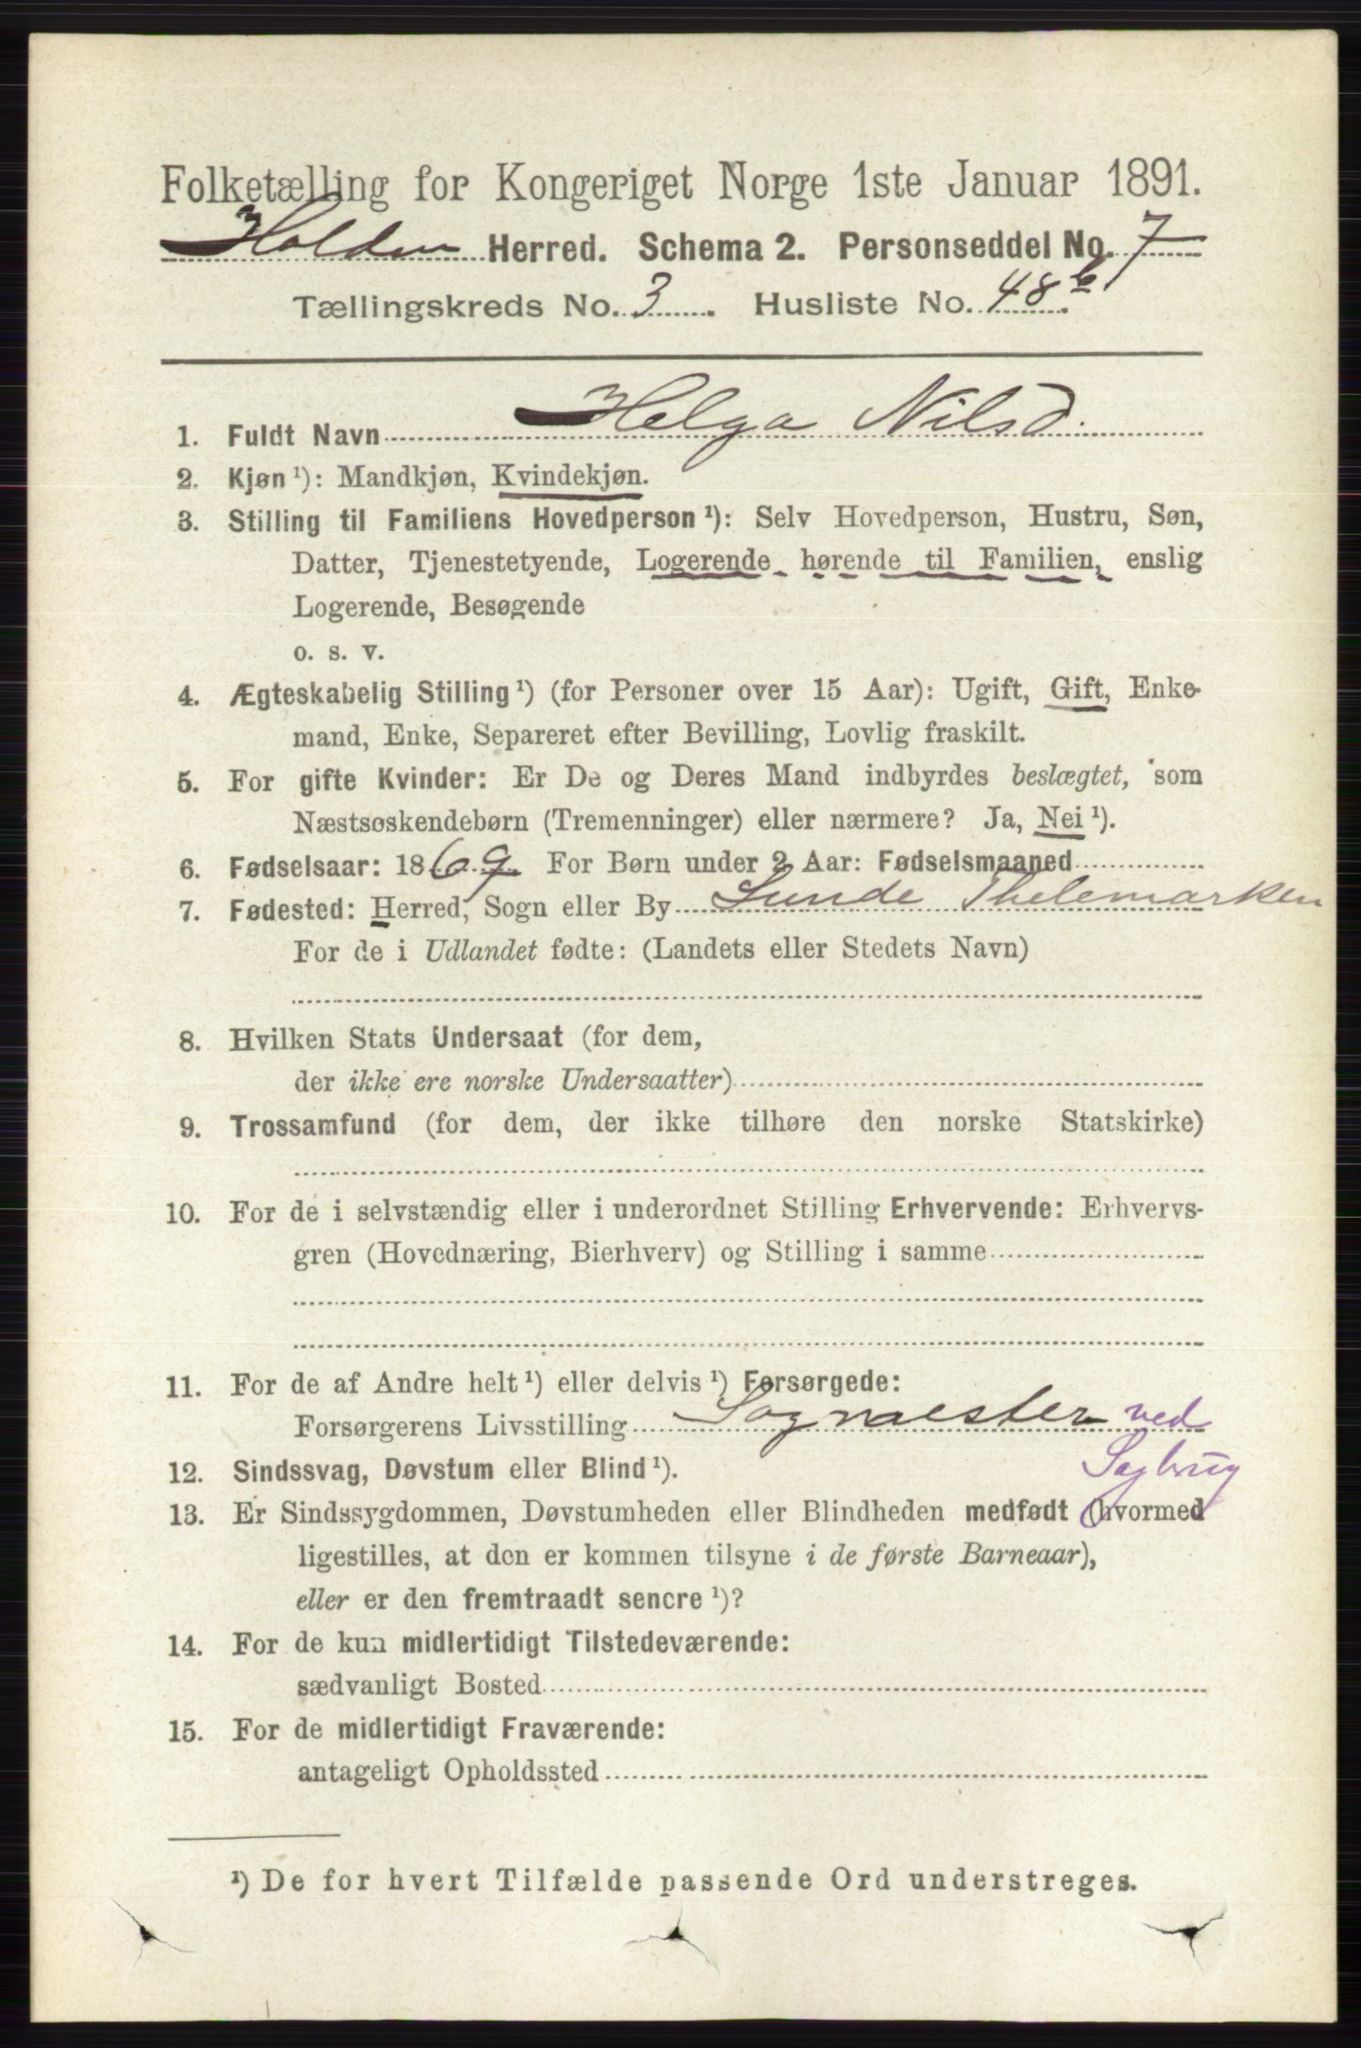 Folketælling for Kongeriget Norge 1ste Januar 1891.
Holden Herred. Schema 2. Personseddel No. 7
Tællingskreds No. 3. Husliste No. 48 b.
1. Fuldt Navn Helga Nilsd.
2. Kjøn ¹): Mandkjøn, Kvindekjøn.
3. Stilling til Familiens Hovedperson ¹): Selv Hovedperson, Hustru, Søn,
Datter, Tjenestetyende, Logerende hørende til Familien, enslig
Logerende, Besøgende
o. s. v.
4. Ægteskabelig Stilling ¹) (for Personer over 15 Aar): Ugift, Gift, Enke-
mand, Enke, Separeret efter Bevilling, Lovlig fraskilt.
5. For gifte Kvinder: Er De og Deres Mand indbyrdes beslægtet, som
Næstsøskendebørn (Tremenninger) eller nærmere? Ja, Nei ¹).
6. Fødselsaar: 1869. For Børn under 2 Aar: Fødselsmaaned
7. Fødested: Herred, Sogn eller By Lunde Thelemarken
For de i Udlandet fødte: (Landets eller Stedets Navn)
8. Hvilken Stats Undersaat (for dem,
der ikke ere norske Undersaatter)
9. Trossamfund (for dem, der ikke tilhøre den norske Statskirke)
10. For de i selvstændig eller i underordnet Stilling Erhvervende: Erhvervs-
gren (Hovednæring, Bierhverv) og Stilling i samme
11. For de af Andre helt ¹) eller delvis ¹) Forsørgede:
Forsørgerens Livsstilling Sagmester ved
Sagbrug
12. Sindssvag, Døvstum eller Blind ¹).
13. Er Sindssygdommen, Døvstumheden eller Blindheden medfødt (hvormed
ligestilles, at den er kommen tilsyne i de første Barneaar),
eller er den fremtraadt senere ¹)?
14. For de kun midlertidigt Tilstedeværende:
sædvanligt Bosted
15. For de midlertidigt Fraværende:
antageligt Opholdssted
¹) De for hvert Tilfælde passende Ord understreges.